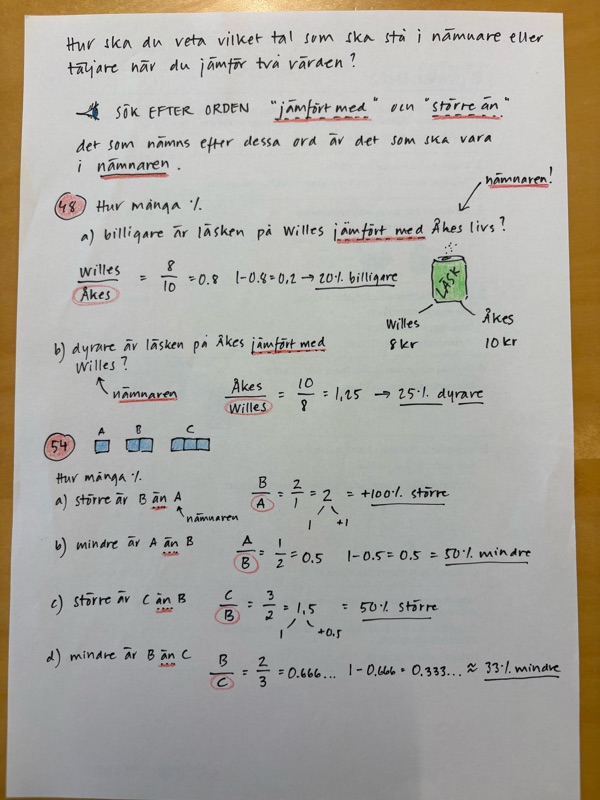 Hur ska du veta vilket tal som ska stå i nämnare eller
täljare när du jämför två värden?
SÖK EFTER ORDEN "jämfört med" och "större än"
det som nämns efter dessa ord är det som ska vara
i nämnaren.
nämnaren!
48 Hur många %
a) billigare är läsken på Willes jämfört med Åkes livs?
Willes/Åkes = 8/10 = 0.8 1-0.8=0,2 → 20% billigare
LÄSK
Willes Åkes
8 kr 10 kr
b) dyrare är läsken på Åkes jämfört med
Willes?
nämnaren
Åkes/Willes = 10/8 = 1,25 → 25% dyrare
54 A B C
Hur många %
a) större är B än A B/A = 2/1 = 2 = +100% större
nämnaren 1 +1
b) mindre är A än B A/B = 1/2 = 0.5 1-0.5 = 0.5 = 50% mindre
c) större är C än B C/B = 3/2 = 1,5 = 50% större
1 +0.5
d) mindre är B än C B/C = 2/3 = 0.666... 1-0.666 = 0.333... ≈ 33% mindre